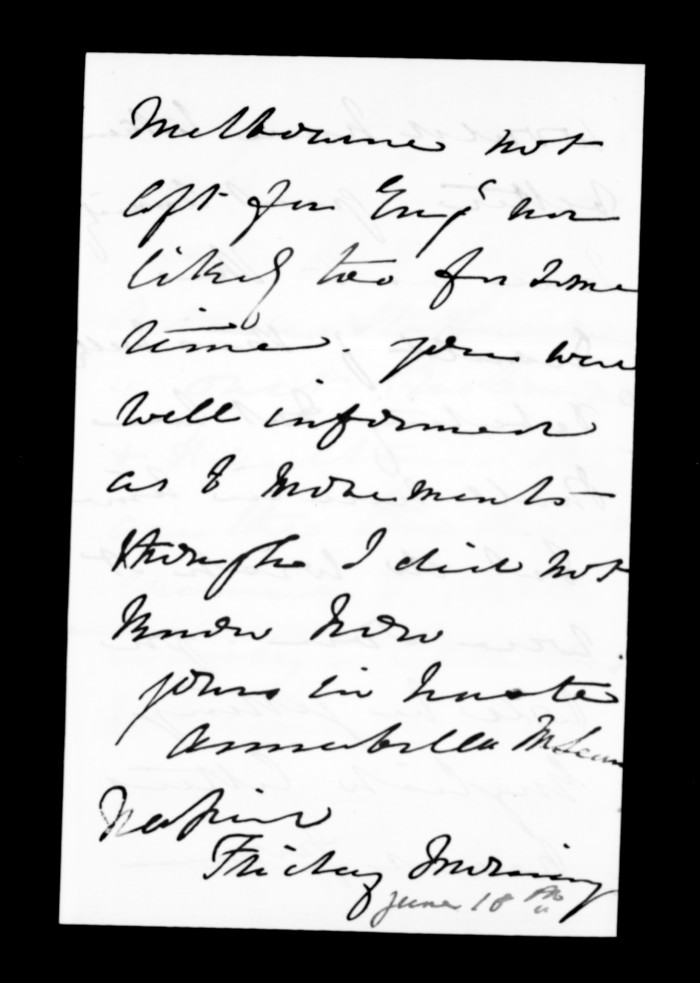 Melbourne not
left for Eng<sup>d</sup> nor
likely too for some
time. you were
well informed
as to movements
though I did not
know how
yours in haste
Annabella McLean
Napier
Friday Morning
June 18